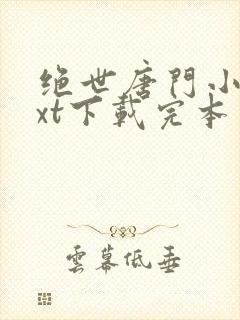 绝世唐門小
xt下載完本
雲幕低垂